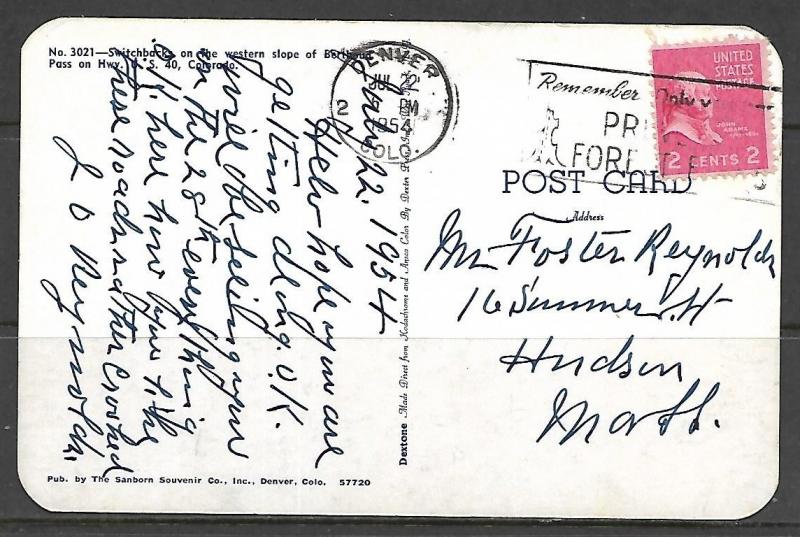 No. 3021—Switchbacks on the western slope of Berthoud
Pass on Hwy. U. S. 40, Colorado.
July 22, 1954
Hello hope you are
getting along O.K.
will be seeing you
on the 28th everything
O.K. here how you like
these roads rather crooked
L O Reynolds.
Pub. by The Sanborn Souvenir Co., Inc., Denver, Colo. 57720
Dextone Made Direct from Kodachrome and Ansco Color By Dexter
DENVER
COLO.
2 PM
1954
Remember Only
PR
FOREST F
UNITED
STATES
POSTAGE
JOHN
ADAMS
2 CENTS 2
POST CARD
Address
Mr Foster Reynolds
16 Summer St
Hudson
Mass.